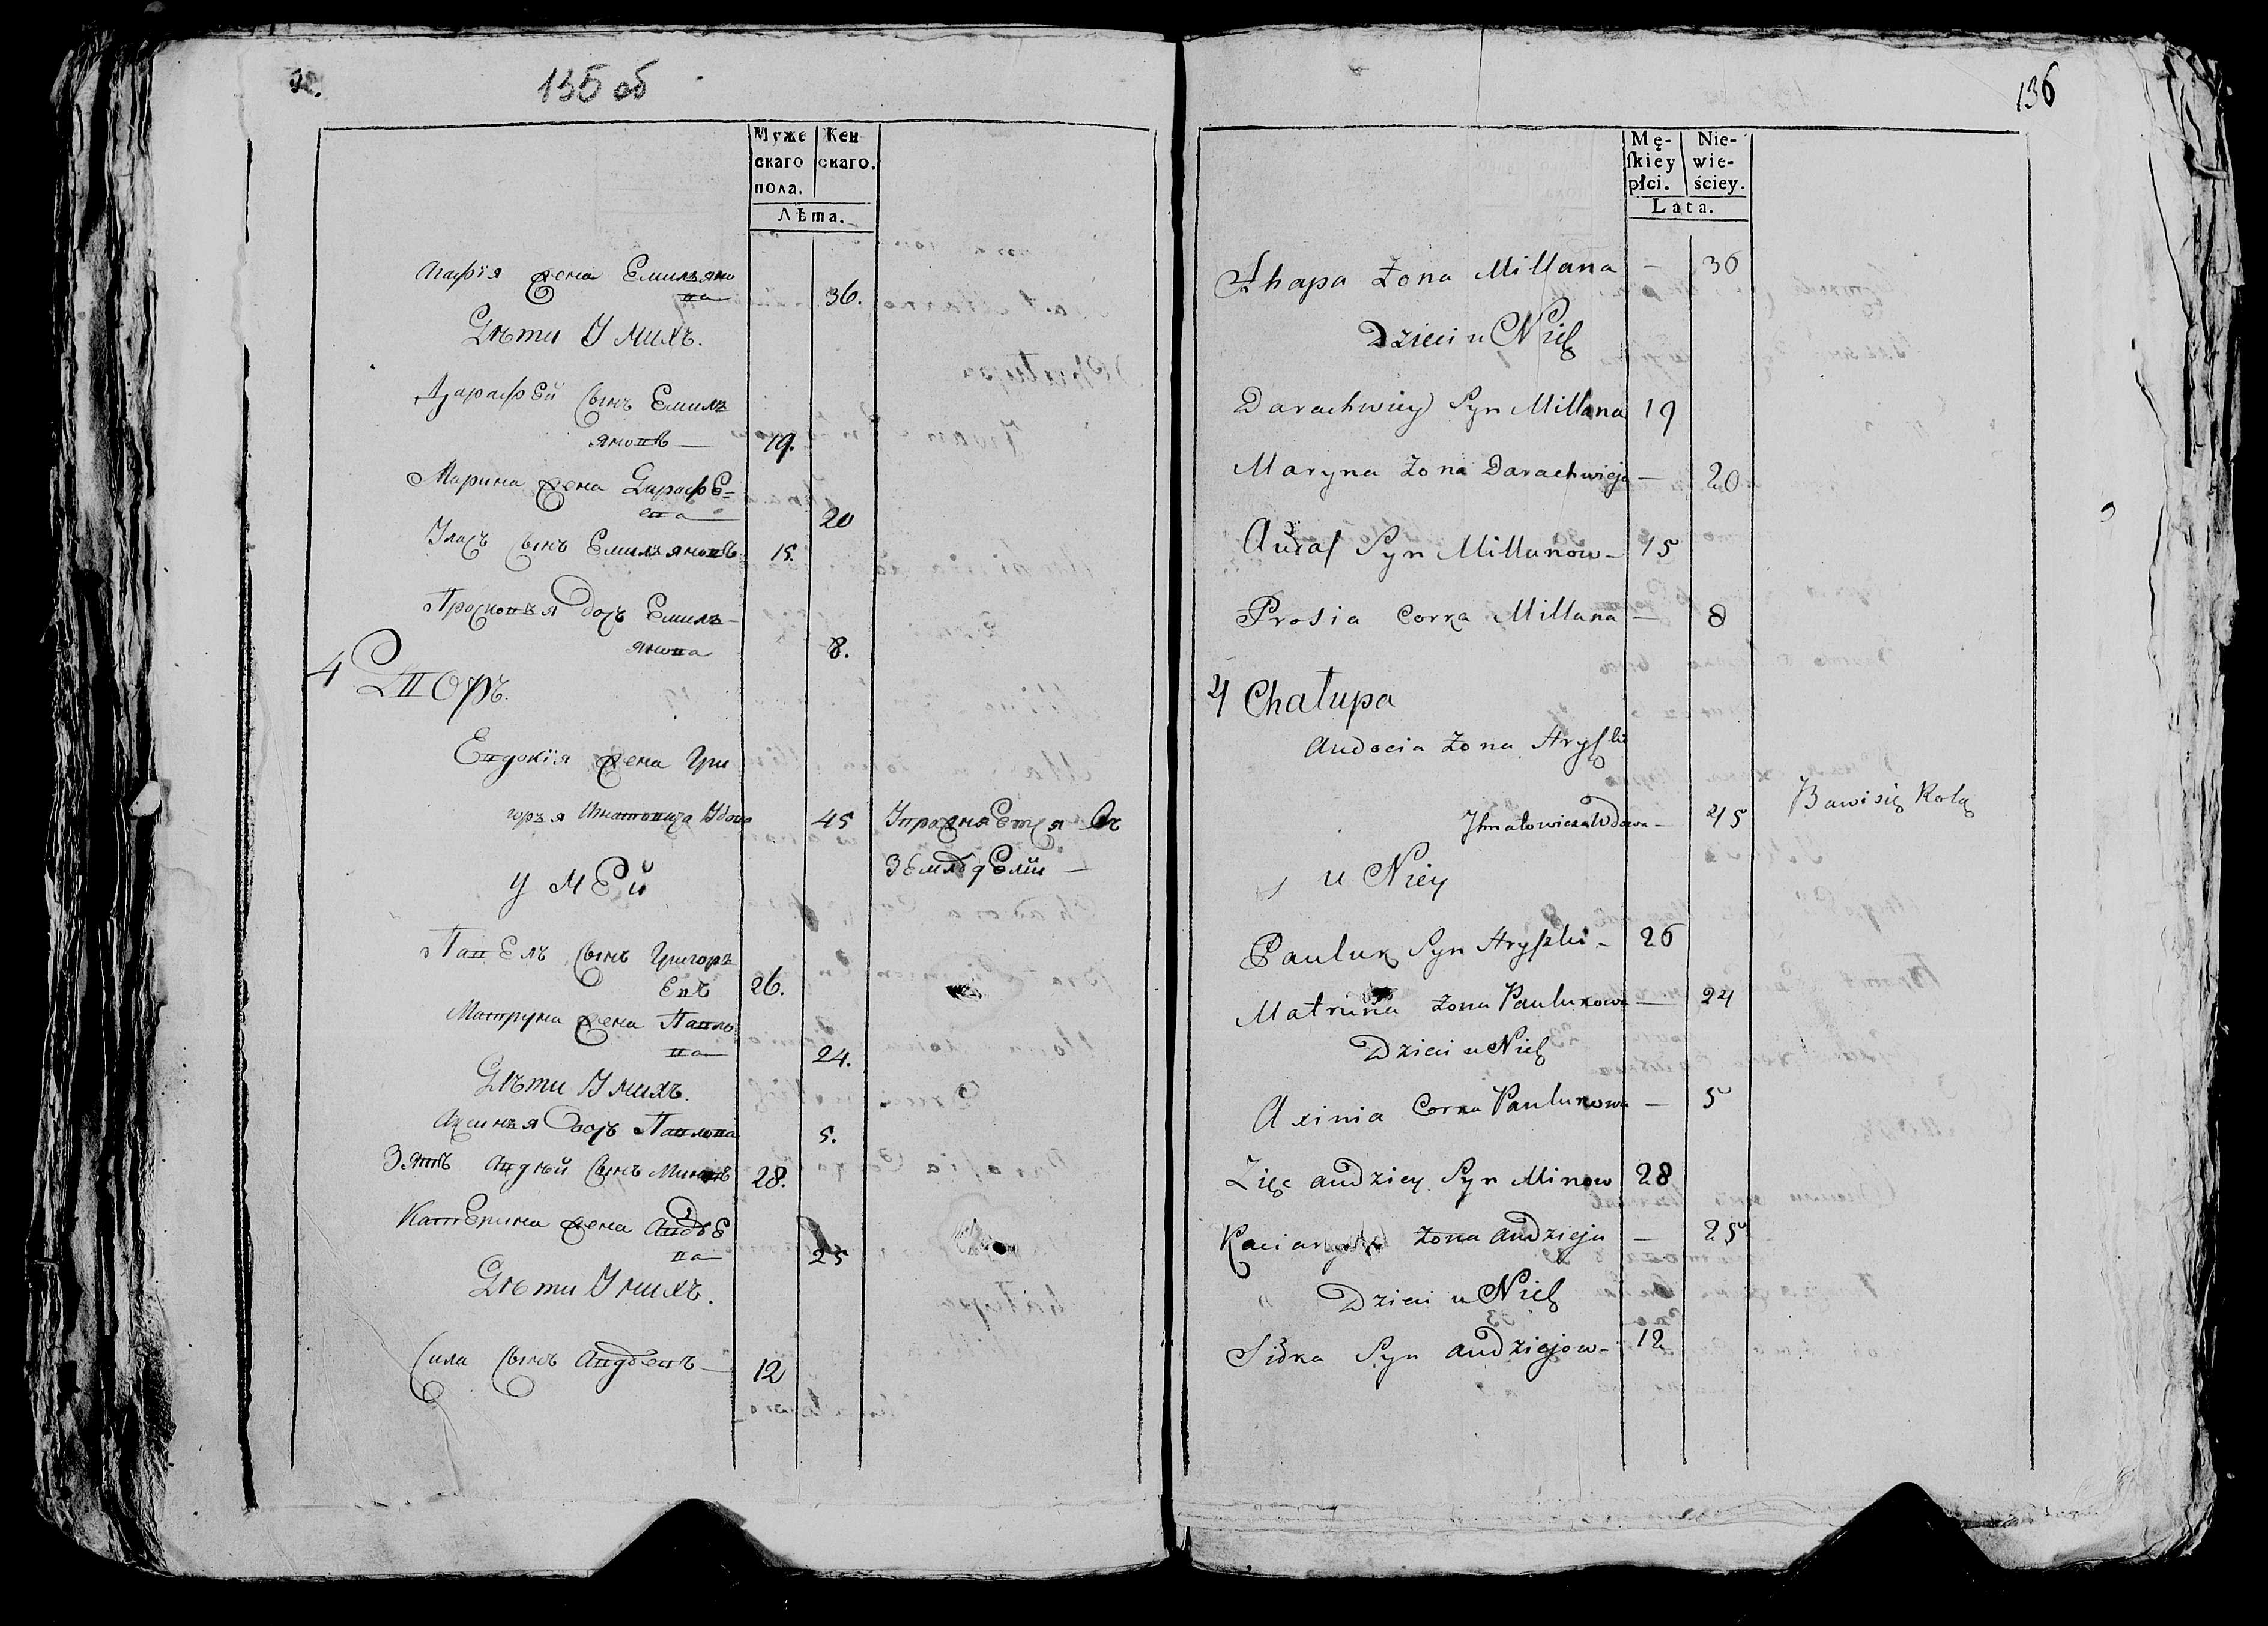 135 об
Муже
скаго
пола.
Жен
скаго.
Лѣта.
Агафія жена Емильяно
ва 36.
Дѣти У нихъ.
Дарафей сынъ Емиль
яновъ — 19.
Марина жена Дарафе=
ева 20
Улас сынъ Емильяновъ 15.
Просковья дочь Емиль-
янова 8.
4 Дворъ.
Евдокія жена Гри
горья Игнатовича Вдова 45 Упражняется въ
земледелии —
У ней
Павелъ сынъ Григорь
евъ 26.
Матруна жена Павло
ва 24.
Дѣти У нихъ.
Аксинья дочь Павлова 5.
Зять Авдѣй сынъ Миновъ 28.
Катерина жена Авдѣе
ва 25
Дѣти У нихъ.
Сила сынъ Авдѣевъ — 12
136
Mę-
ſkiey
płci.
Nie-
wie-
ściey.
Lata.
Ahapa Żona Millana — 36
Dzieci u Nich
Darachwiey Syn Millana 19
Maryna Żona Darachwieja — 20
Aułas Syn Millanow — 15
Prosia Corka Millana — 8
4 Chałupa
Audocia Żona Hryszki
Ihnatowicza Wdowa — 45 Bawi się Rolą
u Niey
Pauluk Syn Hryszki — 26
Matruna Żona Paulukowa — 24
Dzieci u Nich
Axinia Corka Paulukowa — 5
Zięć Audziey Syn Minow 28
Żona Audzieja — 25
Dzieci u Nich
Siłka Syn Audziejow — 12